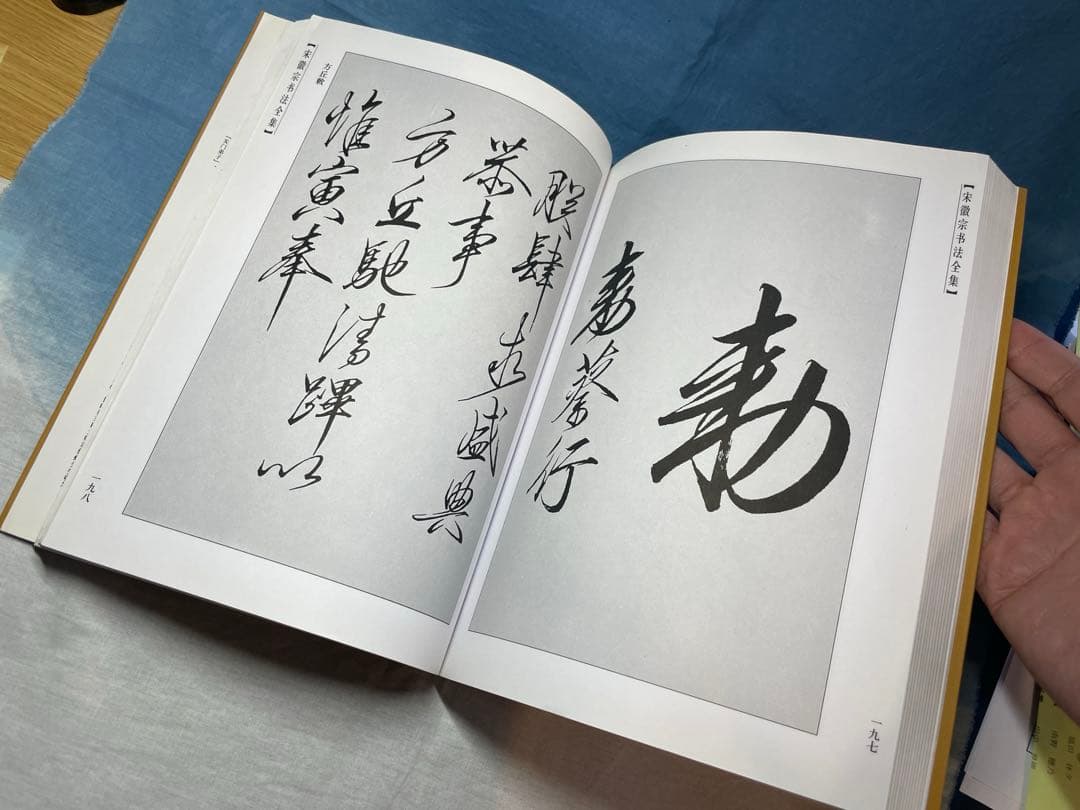 【宋徽宗书法全集】
勅
勅蔡行
一九七
【宋徽宗书法全集】
方丘敕
朕肆求盛典
恭事
方丘馳清蹕以
惟寅奉
一九八